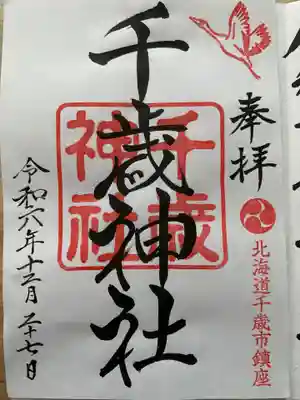 奉拝
北海道千歳市鎮座
千歳神社
千歳
神社
令和六年十二月二十七日